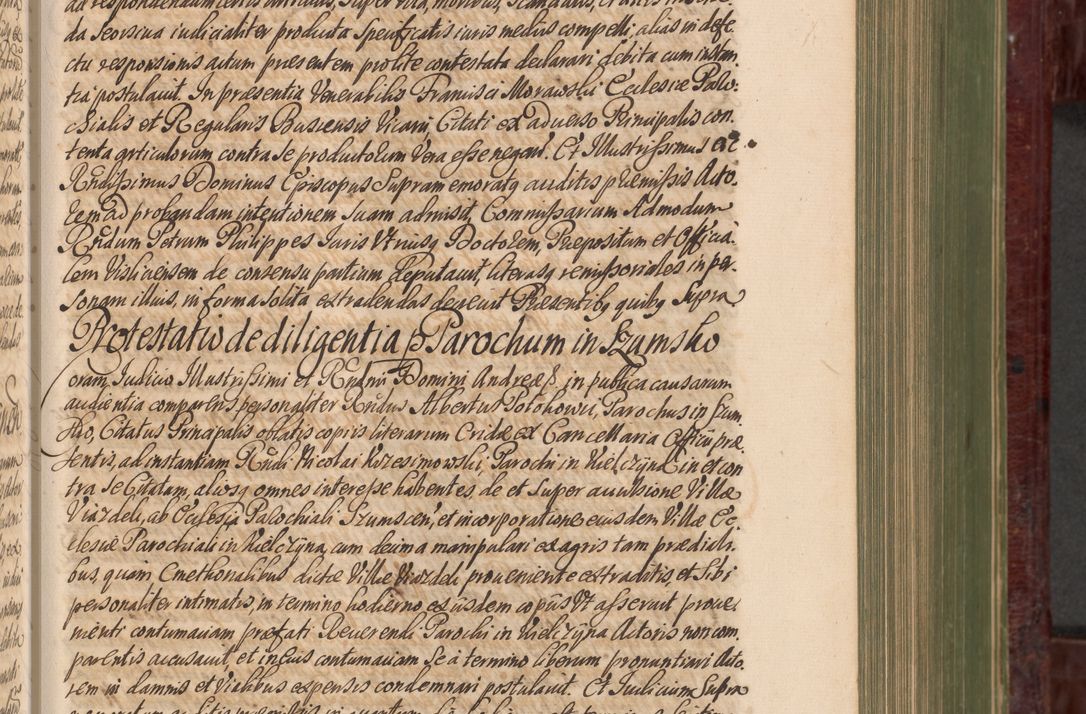 ad respondendum certis articulis, super vita, moribus, scandalis,
da seorsiua iudicialiter producta specificatis iuris mediis compelli, alias in defe-
ctu responsionis actum praesentem pro lite contestata declarari debita cum instan-
tia postulauit. In praesentia Venerabilis Francisci Morawski Ecclesiae Paro-
chialis et Regularis Vicarij, Citati ex aduerso Principalis con-
tenta articulorum contra se productorum vera esse negant. Et Illustrissimus ac
Rndissimus Dominus Episcopus supramemoratq auditis praemissis Acto-
rem ad probandam intentionem suam admisit, Commissarium Admodum
Rndum Petrum Philippes Iuris Vtriusq Doctorem, Praepositum et Officia-
lem Visliciensem de consensu partium deputauit, literasq remissoriales in per-
sonam illius, in forma solita extradendas decreuit Praesentibq quibq supra
Protestatio de diligentia p Parochum in Szumsko
Coram Iudicio Illustrissimi et Rndmi Domini Andreae S. in publica causarum
audientia comparens personaliter Rndus Albertus Potokowic, Parochus in Szum-
sko, Citatus Principalis oblatis copiis literarum Cridae ex Cancellaria Officij prae-
sentis, ad instantiam Rndi Nicolai Wrzesimowski, Parochi in Kielczyna in et con-
tra se Citatam, aliosq omnes interesse habentes, de et super auulsione Villae
Viazdeli, ab Ecclesia Parochiali Szumscen, et incorporatione eiusdem Villae Ec-
clesiae Parochiali in Kielczyna, cum decima manipulari ex agris tam praediali-
bus, quam Cmethonalibus dictae Villae Viazdeli proueniente extraditis, et sibi
personaliter intimatis, in termino hodierno ex iisdem copiis vt asseruit proue-
nienti contumaciam praefati Reuerendi Parochi in Kielczyna Actoris non com-
parentis accusauit, et in eius contumaciam se a termino liberum pronuntiari Acto-
rem in damnis et vialibus expensis condemnari postulauit. Et Iudicium supra